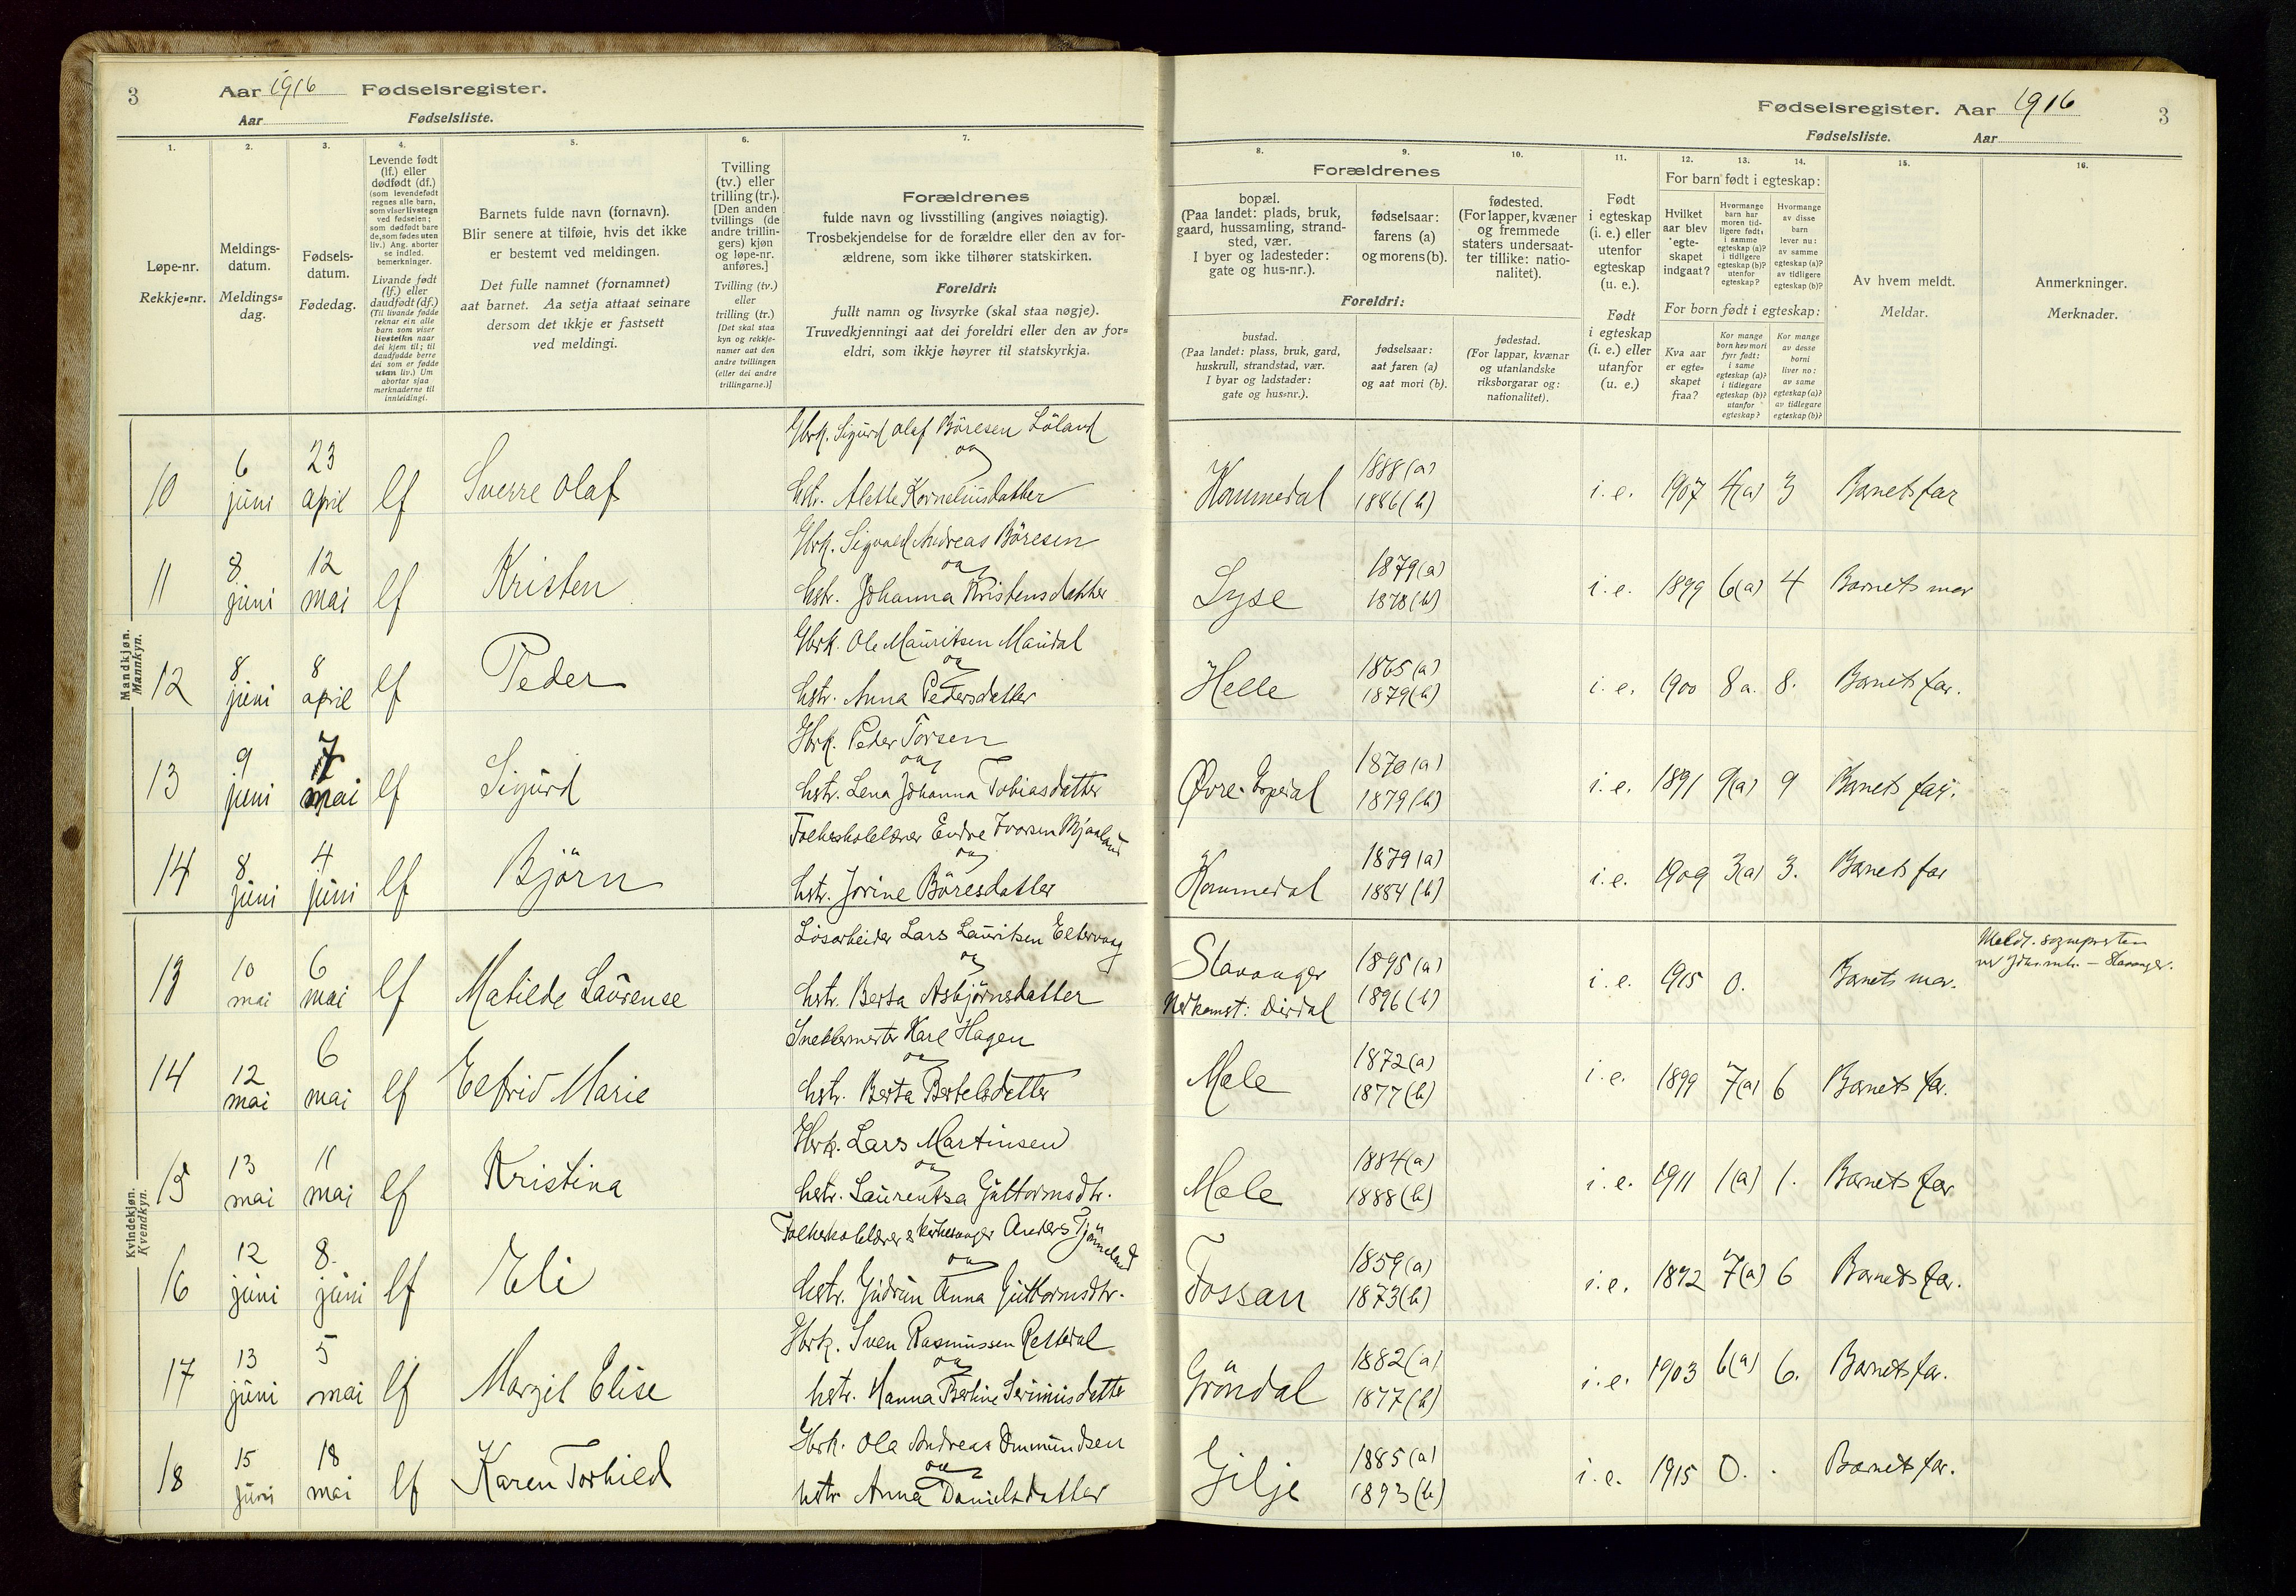 3
Aar 1916 Fødselsregister.
Aar Fødselsliste.
1. 2. 3. 4. 5. 6. 7.
Løpe-nr.
Rekkje=nr.
Meldings-
datum.
Meldings=
dag.
Fødsels-
datum.
Fødedag.
Levende født
(lf.) eller
dødfødt (df.)
(som levendefødt
regnes alle barn,
som viser livstegn
ved fødselen;
som dødfødt bare
de, som fødes uten
liv.) Ang. aborter
se indled.
bemerkninger.
Livande født
(lf.) eller
daudfødt (df.)
(Til livande fødde
reknar ein alle
barn som viser
livsteikn naar
dei kjem til; til
daudfødde berre
dei som er fødde
utan liv.) Um
abortar sjaa
merknaderne til
innleidingi.
Barnets fulde navn (fornavn).
Blir senere at tilføie, hvis det ikke
er bestemt ved meldingen.
Det fulle namnet (fornamnet)
aat barnet. Aa setja attaat seinare
dersom det ikkje er fastsett
ved meldingi.
Tvilling
(tv.) eller
trilling (tr.).
[Den anden
tvillings (de
andre trillin-
gers) kjøn
og løpe-nr.
anføres.]
Tvilling (tv.)
eller
trilling (tr.)
[Det skal staa
kyn og rekkje-
numer aat den
andre tvillingen
(eller dei andre
trillingarne.)]
Forældrenes
fulde navn og livsstilling (angives nøiagtig).
Trosbekjendelse for de forældre eller den av for-
ældrene, som ikke tilhører statskirken.
Foreldri:
fullt namn og livsyrke (skal staa nøgje).
Truvedkjenningi aat dei foreldri eller den av for=
eldri, som ikkje høyrer til statskyrkja.
Mandkjøn.
Mannkyn.
10 6 juni 23 april lf Sverre Olaf
Gbrk. Sigurd Olaf Böresen Löland
og
hstr. Alette Korneliusdatter
11 8 juni 12 mai lf Kristen
Gbrk. Sigvald Andreas Böresen
og
hstr. Johanna Kristensdatter
12 8 juni 8 april lf Peder
Gbrk. Ole Mauritsen Maudal
og
hstr. Anna Pedersdatter
13 9 juni 7 mai lf Sigurd
Gbrk. Peder Torsen
og
hstr. Lena Johanna Tobiasdatter
14 8 juni 4 juni lf Björn
Folkeskolelærer Endre Ivarsen Mjaaland
og
hstr. Jorine Böresdatter
Kvindekjøn.
Kvendkyn.
13 10 mai 6 mai lf Matilde Laurense
Løsarbeider Lars Lauritsen Eltervaag
og
hstr. Berta Asbjørnsdatter
14 12 mai 6 mai lf Elfrid Marie
Snekkermester Karl Hagen
og
hstr. Berta Bertelsdatter
15 13 mai 11 mai lf Kristina
Gbrk. Lars Martinsen
og
hstr. Laurentsa Guttormsdtr.
16 12 juni 8. juni lf Eli
Folkeskolelærer & kirkesanger Anders Tjömeland
og
hstr. Gudrun Anna Guttormsdtr.
17 13 juni 5 mai lf Margit Elise
Gbrk. Sven Rasmussen Rettedal
og
hstr. Hanna Bertine Serinusdatter
18 15 juni 18 mai lf Karen Torhild
Gbrk. Ola Andreas Ommundsen
og
hstr. Anna Danielsdatter
Fødselsregister. Aar 1916
3
Fødselsliste. Aar
8. 9. 10. 11. 12. 13. 14. 15. 16.
Forældrenes
bopæl.
(Paa landet: plads, bruk,
gaard, hussamling, strand-
sted, vær.
I byer og ladesteder:
gate og hus-nr.).
fødselsaar:
farens (a)
og morens (b).
fødested.
(For lapper, kvæner
og fremmede
staters undersaat-
ter tillike: natio-
nalitet).
Foreldri:
bustad.
(Paa landet: plass, bruk, gard,
huskrull, strandstad, vær.
I byar og ladstader:
gate og hus=nr.).
fødselsaar:
aat faren (a)
og aat mori (b).
fødestad.
(For lappar, kvænar
og utanlandske
riksborgarar og:
nationalitet).
Født
i egteskap
(i. e.) eller
utenfor
egteskap
(u. e.).
Født
i egteskap
(i. e.) eller
utanfor
(u. e.)
For barn født i egteskap:
Hvilket
aar blev
egte-
skapet
indgaat?
Hvormange
barn har
moren tid-
ligere født:
i samme
egteskap (a)?
i tidligere
egteskap (b)?
utenfor
egteskap?
Hvormange
av disse
barn
lever nu:
av samme
egteskap (a)?
av tidligere
egteskap (b)?
For born født i egteskap:
Kva aar
er egte=
skapet
fraa?
Kor mange
born hev mori
fyrr født:
i same
egteskap (a)?
i tidlegare
egteskap (b)?
utanfor
egteskap?
Kor mange
av desse
borni
liver no:
av same
egteskap (a)?
av tidlegare
egteskap (b)?
Av hvem meldt.
Meldar.
Anmerkninger.
Merknader.
Kommedal 1888 (a) 1886 (b) i. e. 1907 4(a) 3 Barnets far
Lyse 1879 (a) 1878 (b) i. e. 1899 6(a) 4 Barnets mor
Helle 1865 (a) 1879 (b) i. e. 1900 8 a. 8. Barnets far.
Øvre-Espedal 1870 (a) 1879 (b) i. e. 1891 9(a) 9 Barnets far.
Kommedal 1879 (a) 1884 (b) i. e. 1909 3(a) 3. Barnets far
Stavanger
Nedkomst: Dirdal 1895 (a) 1896 (b) i. e. 1915 0. Barnets mor.
Meldt. sogneprsten
ved Joh.mh. – Stavanger.
Mele 1872 (a) 1877 (b) i. e. 1899 7(a) 6 Barnets far.
Mele 1884 (a) 1888 (b) i. e. 1911 1(a) 1. Barnets far
Fossan 1859 (a) 1873 (b) i. e. 1892 7(a) 6 Barnets far.
Gröndal 1882 (a) 1877 (b) i. e. 1903 6(a) 6. Barnets far.
Gilje 1885 (a) 1893 (b) i. e. 1915 0. . Barnets far.